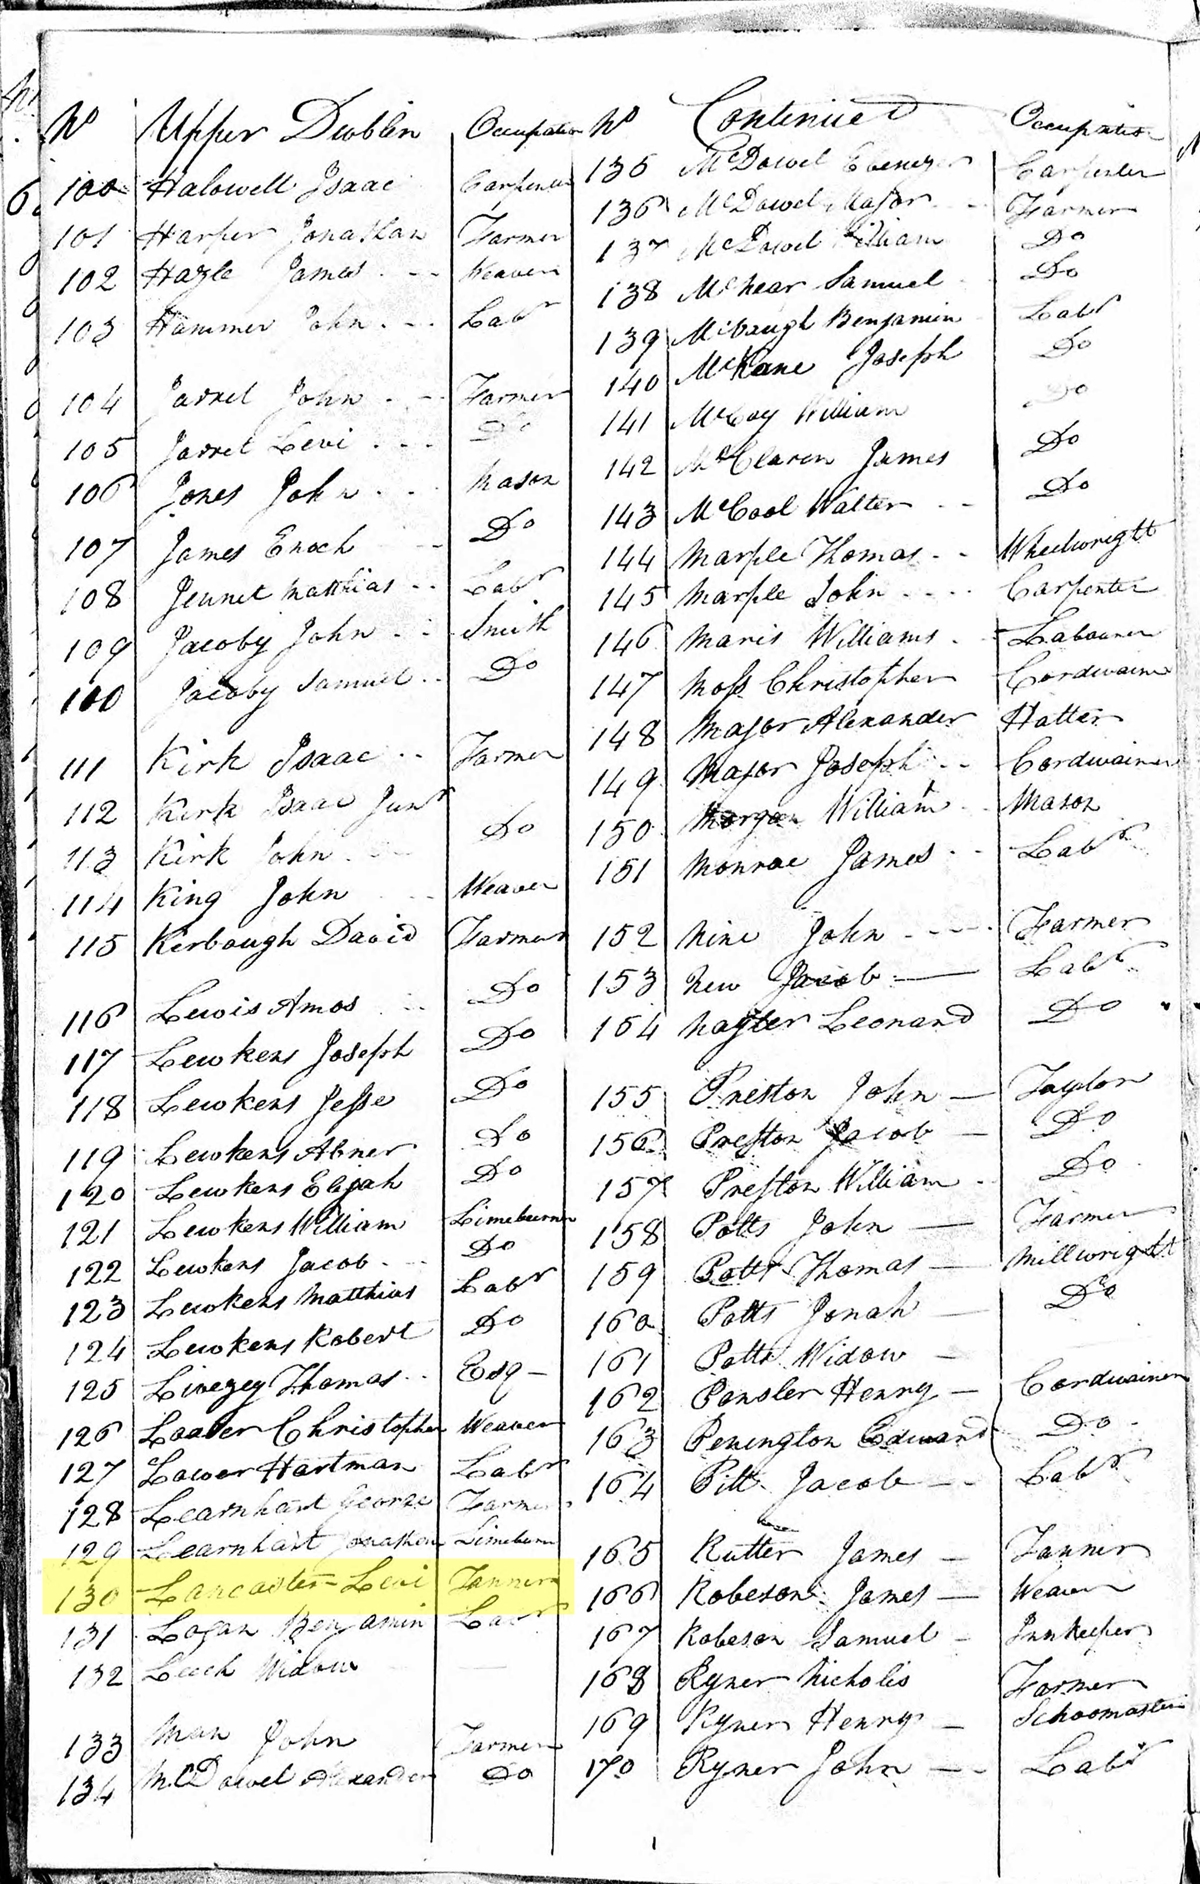 No Upper Dublin Occupation
100 Halowell Isaac Carpenter
101 Harper Jonathan Farmer
102 Hazle James Weaver
103 Hammer John Labr
104 Jarret John Farmer
105 Jarret Levi Do
106 Jones John Mason
107 James Enoch Do
108 Jennet Matthias Labr
109 Jacoby John Smith
110 Jacoby Samuel Do
111 Kirk Isaac Farmer
112 Kirk Isaac Junr
113 Kirk John Do
114 King John Weaver
115 Kerbaugh David Farmer
116 Lewis Amos Do
117 Lewkens Joseph Do
118 Lewkens Jesse Do
119 Lewkens Abner Do
120 Lewkens Elijah Do
121 Lewkens William Limeburner
122 Lewkens Jacob Do
123 Lewkens Matthias Labr
124 Lewkens Robert Do
125 Livezey Thomas Esq
126 Christopher Weaver
127 Lower Hartman Labr
128 Learnhart George Farmer
129 Learnhart Jonathan Limeburn
130 Lancaster Levi Tanner
131 Logan Benjamin Labr
132 Leech Widow
133 Man John Farmer
134 McDowel Alexander Do
No Continued Occupation
135 McDowel Ebenezer Carpenter
136 McDowel Major Farmer
137 McDowel William Do
138 McNear Samuel Do
139 Benjamin Labr
140 McKane Joseph Do
141 McCoy William Do
142 McClaren James Do
143 McCool Walter Do
144 Marple Thomas Wheelwright
145 Marple John Carpenter
146 Maris Williams Labourer
147 Moss Christopher Cordwainer
148 Major Alexander Hatter
149 Major Joseph Cordwainer
150 Morgan William Mason
151 Monroe James Labr
152 Nine John Farmer
153 New Jacob Labr
154 Leonard Do
155 Preston John Taylor
156 Preston Jacob Do
157 Preston William Do
158 Potts John Farmer
159 Potts Thomas Millwright
160 Potts Jonah Do
161 Potts Widow
162 Ponsler Henry Cordwainer
163 Penington Edward Do
164 Pitt Jacob Labr
165 Rutter James Tanner
166 Robeson James Weaver
167 Robeson Samuel Innkeeper
168 Ryner Nicholis Farmer
169 Ryner Henry Schoomaster
170 Ryner John Labr